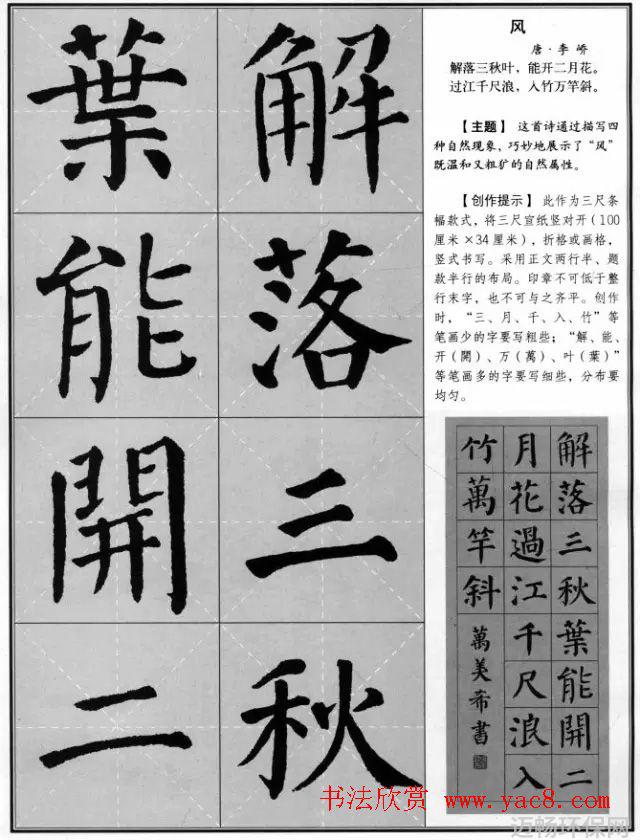 解落三秋
葉能開二
风
唐·李峤
解落三秋叶，能开二月花。
过江千尺浪，入竹万竿斜。
【主题】 这首诗通过描写四
种自然现象，巧妙地展示了“风”
既温和又粗犷的自然属性。
【创作提示】 此作为三尺条
幅款式，将三尺宣纸竖对开（100
厘米×34厘米），折格或画格，
竖式书写。采用正文两行半、题
款半行的布局。印章不可低于整
行末字，也不可与之齐平。创作
时，“三、月、千、入、竹”等
笔画少的字要写粗些；“解、能、
开（開）、万（萬）、叶（葉）”
等笔画多的字要写细些，分布要
均匀。
解落三秋葉能開二
月花過江千尺浪入
竹萬竿斜
萬美希書
书法欣赏 www.yac8.com
迈畅环保网